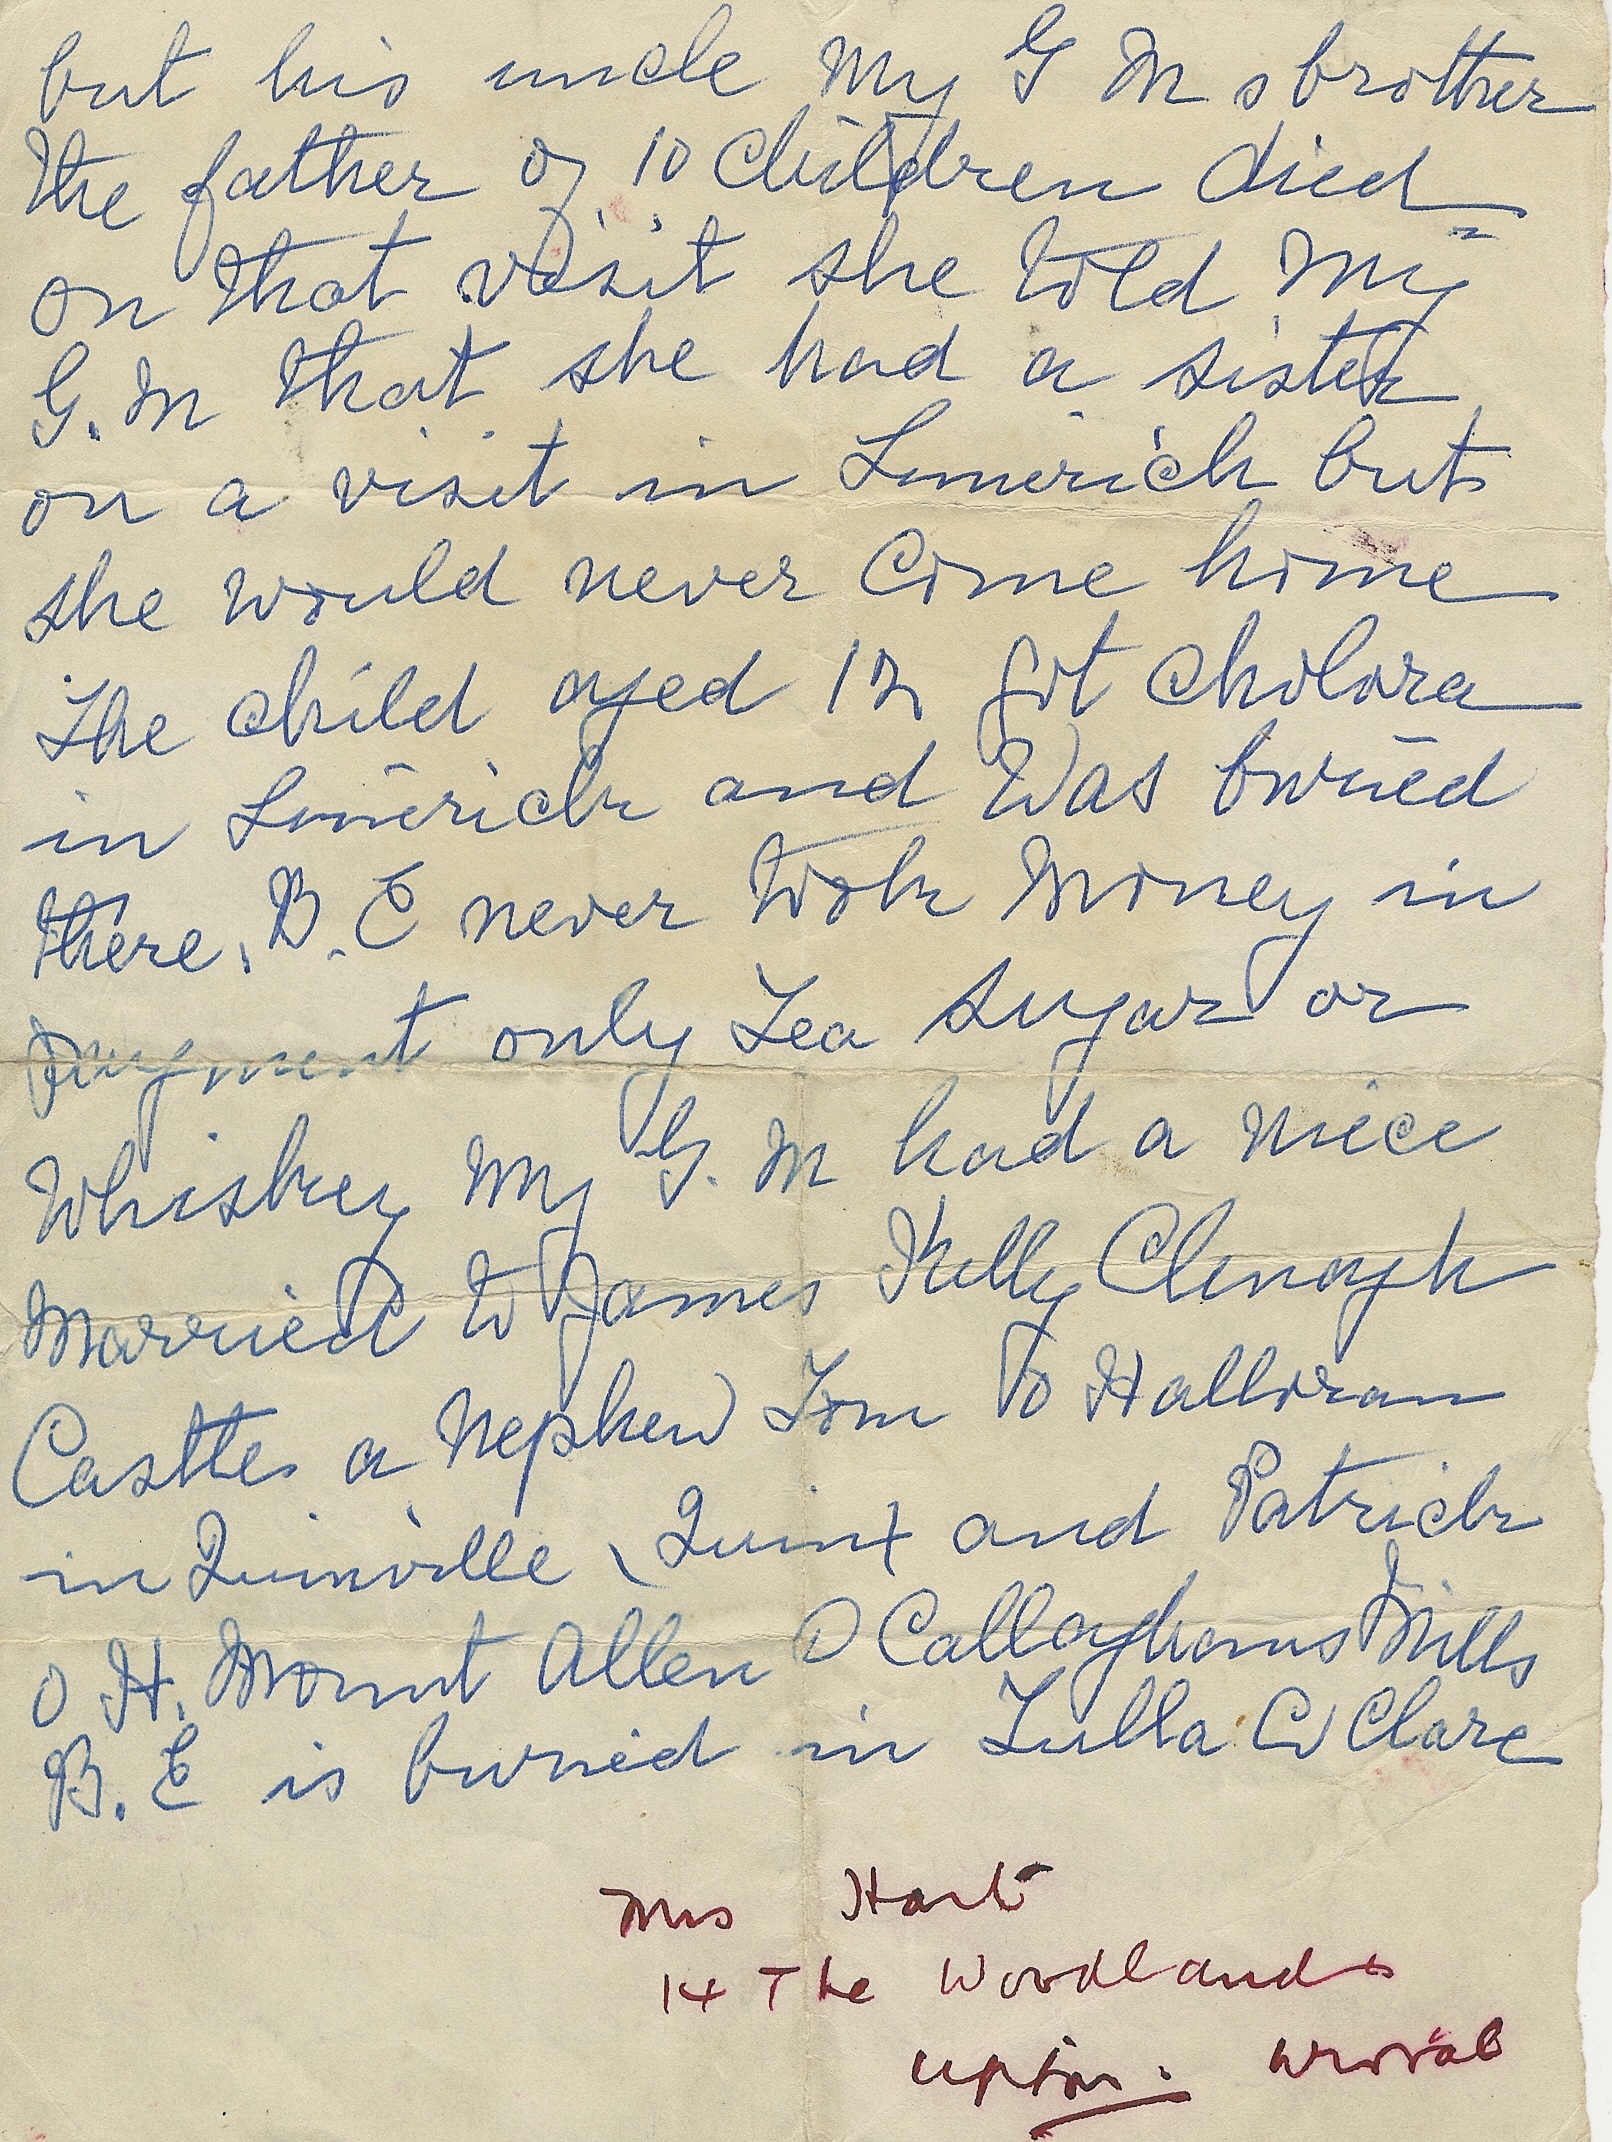 but his uncle My G M s brother
the father of 10 children died
on that visit she told My
G. M that she had a sister
on a visit in Limerick but
she would never come home
The child aged 12 got cholora
in Limerick and Was buried
there. B. E never took money in
payment only Tea sugar or
Whiskey My G. M had a niece
Married to James Kelly Clenagh
Castle a Nephew Tom O Halloran
in Quinville Quin and Patrick
O H. Mount Allen O Callaghans Mills
B. E is buried in Tulla Co Clare
Mrs Hart
14 The Woodlands
upton. wirral